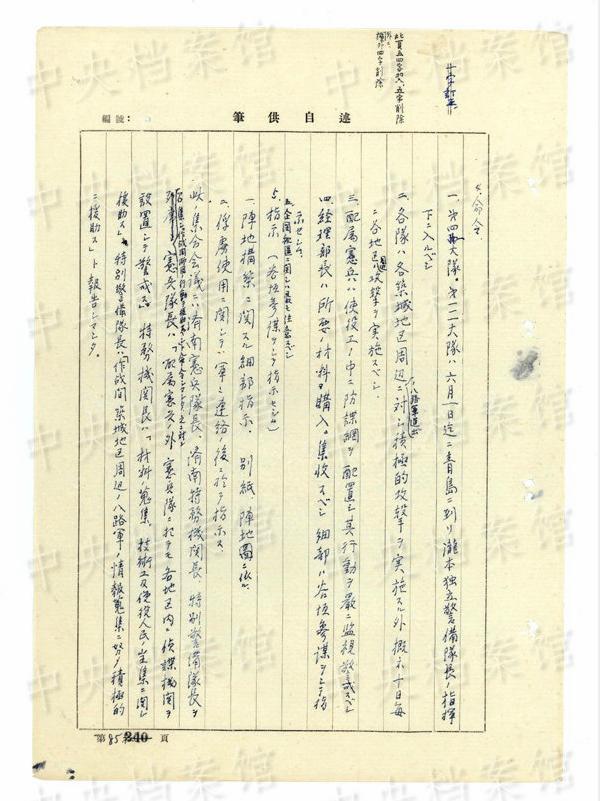 此頁五四字加入、五字削除
欄外四字削除
編號：
筆供自述
4. 命令
一、第四四大隊、第一二大隊ハ六月一日迄ニ青島ニ到リ瀧本独立警備隊長ノ指揮
下ニ入ルベシ
二、各隊ハ各築城地区周辺ニ対シ積極的攻撃ヲ実施スル外概ネ十日毎
ニ各地区周辺ノ八路軍進出攻撃ヲ実施スベシ
三、配属憲兵ハ使役工ノ中ニ防諜網ヲ配置シ其行動ヲ厳ニ監視警戒スベシ
四、経理部長ハ所要ノ材料ヲ購入、集收スベシ 細部ハ谷垣参謀ヲシテ指
示セシム
五、企図秘匿ニ関シテハ最モ注意スベシ
5. 指示（谷垣参謀ヲシテ指示セシム）
一、陣地構築ニ関スル細部指示、別紙陣地圖ニ依ル
二、俘虜使用ニ関シテハ軍ト連絡ノ後ニ於テ指示ス
此ノ集合会議ニハ済南憲兵隊長、済南特務機関長、特別警備隊長ヲ
列席
憲兵隊長ハ「配属憲兵ノ外憲兵隊ニ於テモ各地区内ニ偵諜機関ヲ
設置シテ警戒ス」 特務機関長ハ「材料ノ蒐集、技術工及使役人民ノ坐集ニ関シ
援助ス」 特別警備隊長ハ「作戦間築城地区周辺ノ八路軍ノ情報蒐集ニ努メ積極的
ニ援助スル」ト報告シマシタ。
第 85 240 頁
中央档案馆